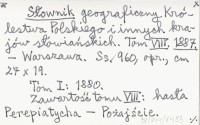 Słownik geograficzny Kró-
lestwa Polskiego i innych kra-
jów słowiańskich. Tom VIII, 1887.
– Warszawa. Ss. 960, opr., cm
27 x 19.
Tom I: 1880.
Zawartość tomu VIII: hasła
Perepiatycha – Pożajście.